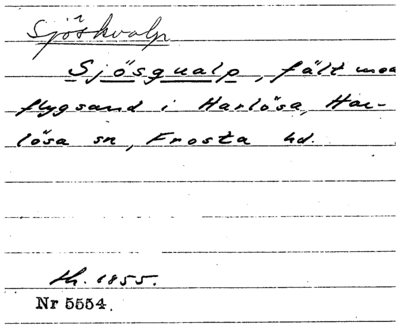 Sjöskvalp
Sjösqualp, fält med
flygsand i Harlösa, Har-
lösa sn, Frosta hd.
th. 1855.
Nr 5554.